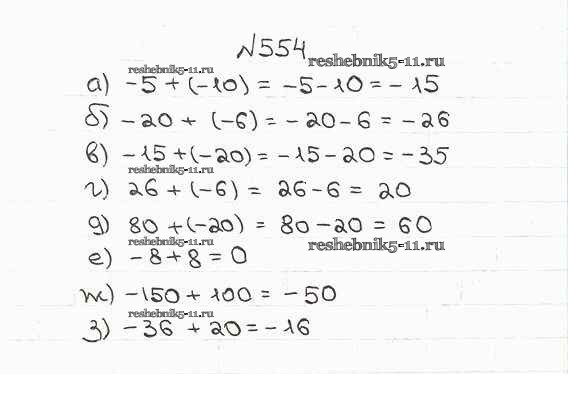 №554
reshebnik5-11.ru
reshebnik5-11.ru
а) -5 + (-10) = -5 - 10 = -15
б) -20 + (-6) = -20 - 6 = -26
в) -15 + (-20) = -15 - 20 = -35
reshebnik5-11.ru
г) 26 + (-6) = 26 - 6 = 20
д) 80 + (-20) = 80 - 20 = 60
reshebnik5-11.ru
reshebnik5-11.ru
е) -8 + 8 = 0
ж) -150 + 100 = -50
reshebnik5-11.ru
з) -36 + 20 = -16